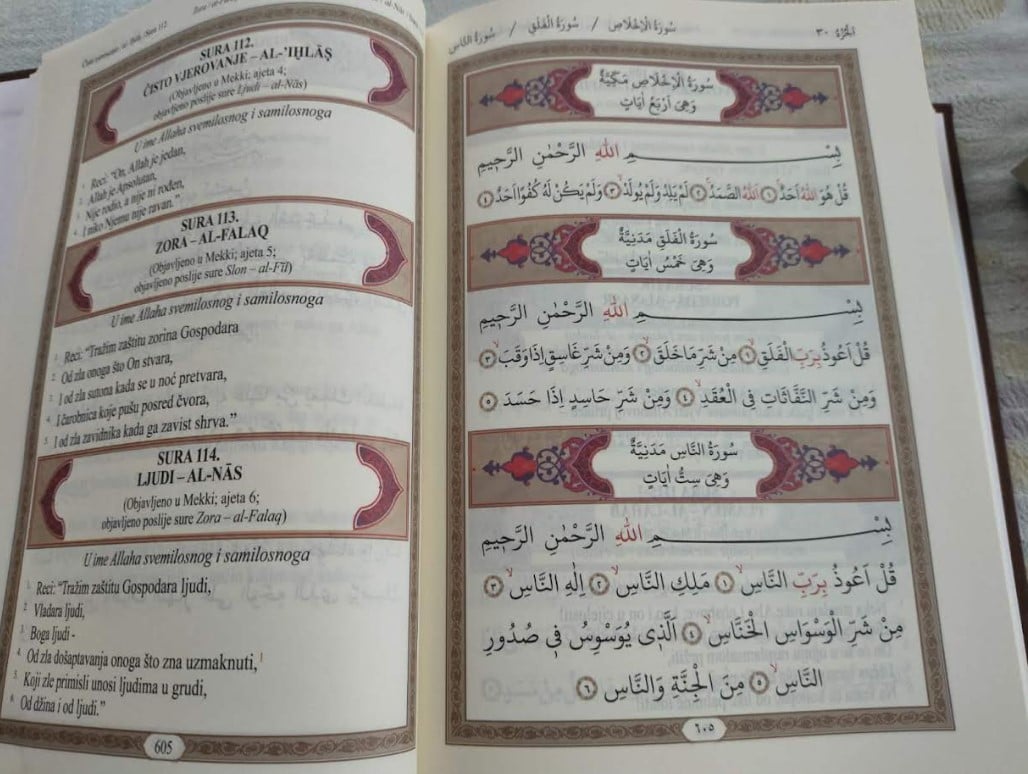 SURA 112.
ČISTO VJEROVANJE – AL-'IḪLĀṢ
(Objavljeno u Mekki; ajeta 4;
objavljeno poslije sure Ljudi – al-Nās)
U ime Allaha svemilosnog i samilosnoga
1. Reci: “On, Allah je jedan,
2. Allah je Apsolutan,
3. Nije rodio, a nije ni rođen,
4. I niko Njemu nije ravan.”
SURA 113.
ZORA – AL-FALAQ
(Objavljeno u Mekki; ajeta 5;
objavljeno poslije sure Slon – al-Fīl)
U ime Allaha svemilosnog i samilosnoga
1. Reci: “Tražim zaštitu zorina Gospodara
2. Od zla onoga što On stvara,
3. I od zla sutona kada se u noć pretvara,
4. I čarobnica koje pušu posred čvora,
5. I od zla zavidnika kada ga zavist shrva.”
SURA 114.
LJUDI – AL-NĀS
(Objavljeno u Mekki; ajeta 6;
objavljeno poslije sure Zora – al-Falaq)
U ime Allaha svemilosnog i samilosnoga
1. Reci: “Tražim zaštitu Gospodara ljudi,
2. Vladara ljudi,
3. Boga ljudi -
4. Od zla došaptavanja onoga što zna uzmaknuti,
5. Koji zle primisli unosi ljudima u grudi,
6. Od džina i od ljudi.”
605
اَلْجُزْءُ ٣٠ سُورَةُ الْاِخْلَاصِ / سُورَةُ الْفَلَقِ / سُورَةُ النَّاسِ
سُورَةُ الْاِخْلَاصِ مَكِّيَّةٌ
وَهِىَ اَرْبَعُ اٰيَاتٍ
بِسْمِ اللهِ الرَّحْمٰنِ الرَّحِيمِ
قُلْ هُوَ اللهُ اَحَدٌ ١ اَللهُ الصَّمَدُ ٢ لَمْ يَلِدْ وَلَمْ يُولَدْ ٣ وَلَمْ يَكُنْ لَهُ كُفُوًا اَحَدٌ ٤
سُورَةُ الْفَلَقِ مَدَنِيَّةٌ
وَهِىَ خَمْسُ اٰيَاتٍ
بِسْمِ اللهِ الرَّحْمٰنِ الرَّحِيمِ
قُلْ اَعُوذُ بِرَبِّ الْفَلَقِ ١ مِنْ شَرِّ مَا خَلَقَ ٢ وَمِنْ شَرِّ غَاسِقٍ اِذَا وَقَبَ ٣
وَمِنْ شَرِّ النَّفَّاثَاتِ فِى الْعُقَدِ ٤ وَمِنْ شَرِّ حَاسِدٍ اِذَا حَسَدَ ٥
سُورَةُ النَّاسِ مَدَنِيَّةٌ
وَهِىَ سِتُّ اٰيَاتٍ
بِسْمِ اللهِ الرَّحْمٰنِ الرَّحِيمِ
قُلْ اَعُوذُ بِرَبِّ النَّاسِ ١ مَلِكِ النَّاسِ ٢ اِلٰهِ النَّاسِ ٣
مِنْ شَرِّ الْوَسْوَاسِ الْخَنَّاسِ ٤ اَلَّذِى يُوَسْوِسُ فِى صُدُورِ
النَّاسِ ٥ مِنَ الْجِنَّةِ وَالنَّاسِ ٦
٦٠٥